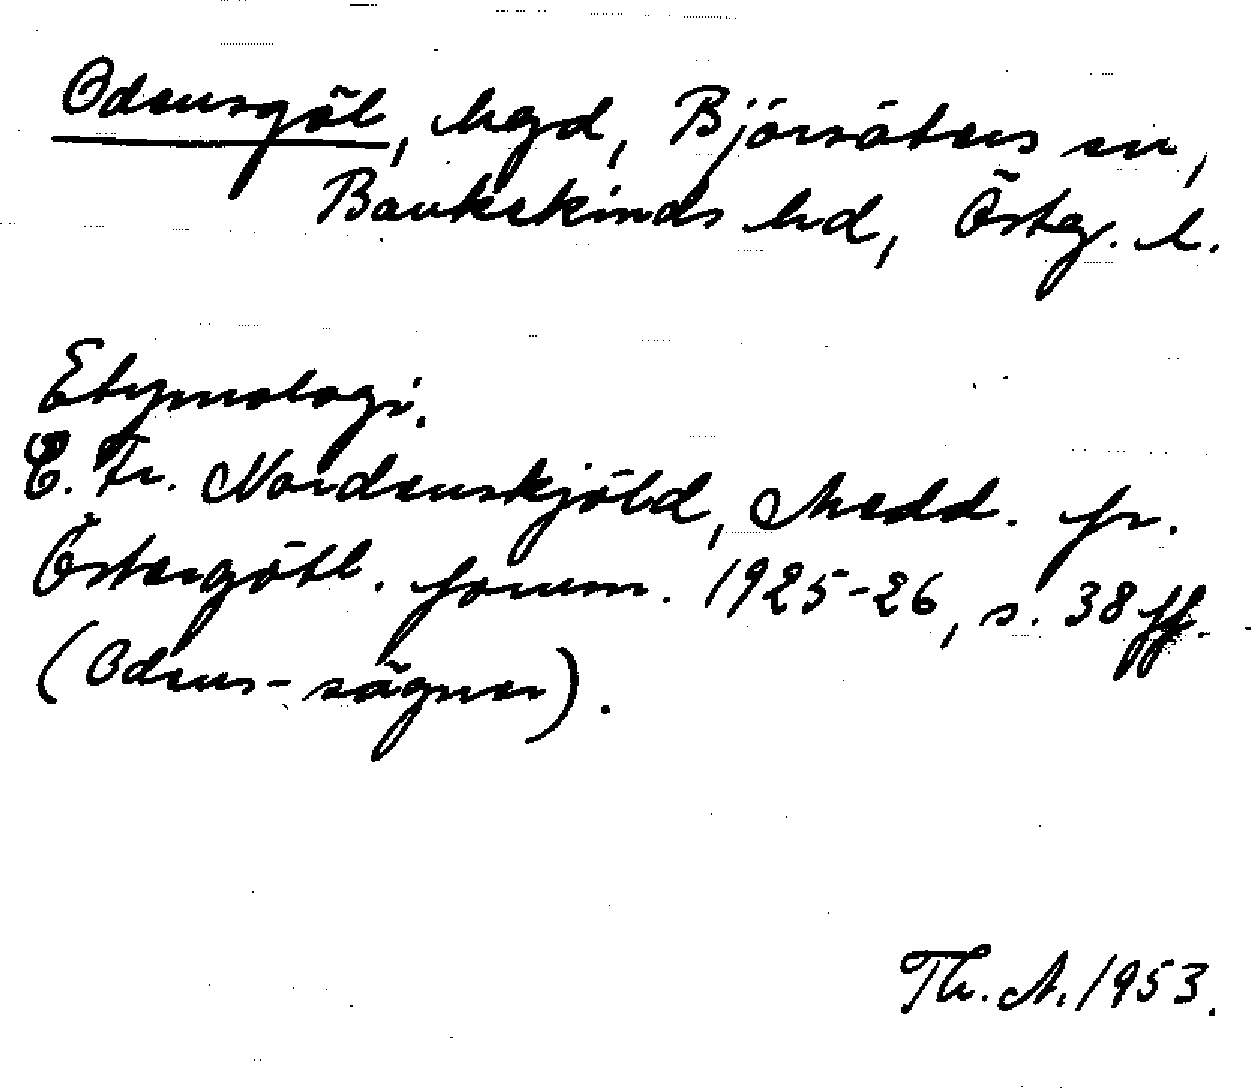 Odensgöl, hgd, Björsäters sn,
Bankekinds hd, Östg. l.
Etymologi.
C. Fr. Nordenskjöld, Medd. fr.
Östergötl. fornm. 1925-26, s. 38 ff.
(Odens-sägner).
Th. A. 1953.